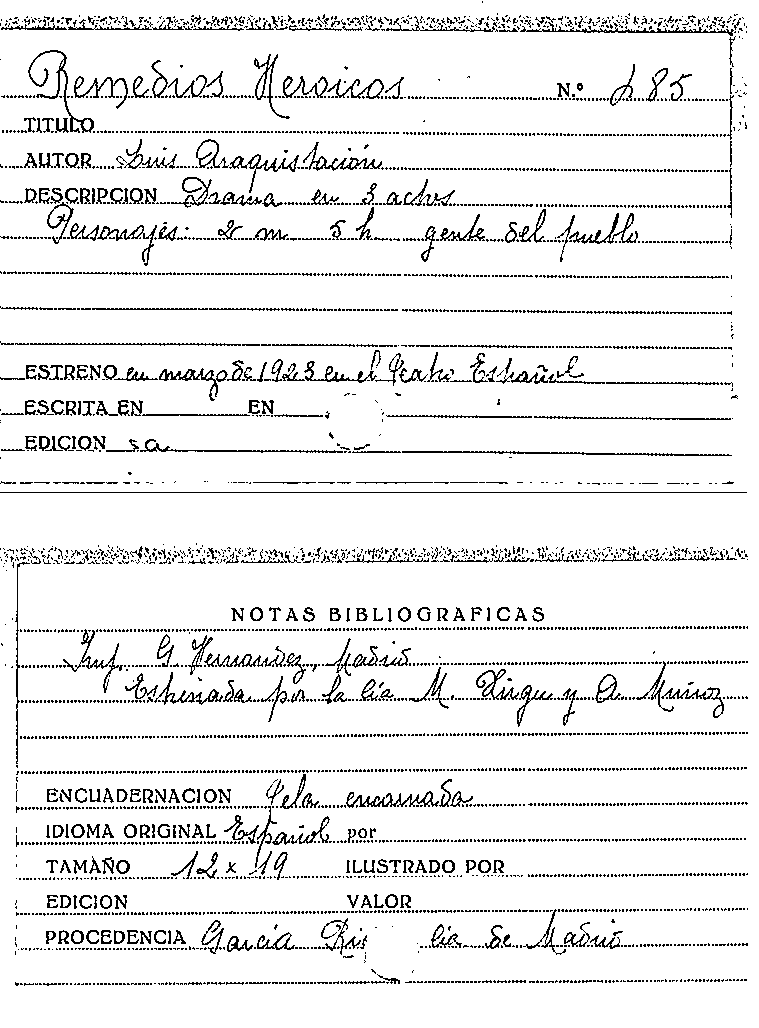 Remedios Heroicos N.º 485
TITULO
AUTOR Luis Araquistación
DESCRIPCION Drama en 3 actos
Personajes: 2 m 5 h gente del pueblo
ESTRENO en marzo de 1923 en el Teatro Español
ESCRITA EN EN
EDICION sa
NOTAS BIBLIOGRAFICAS
Imp. G. Hernandez, Madrid
Estrenada por la Cía M. Xirgu y A. Muñoz
ENCUADERNACION Tela encarnada
IDIOMA ORIGINAL Español por
TAMAÑO 12 x 19 ILUSTRADO POR
EDICION VALOR
PROCEDENCIA García de Madrid